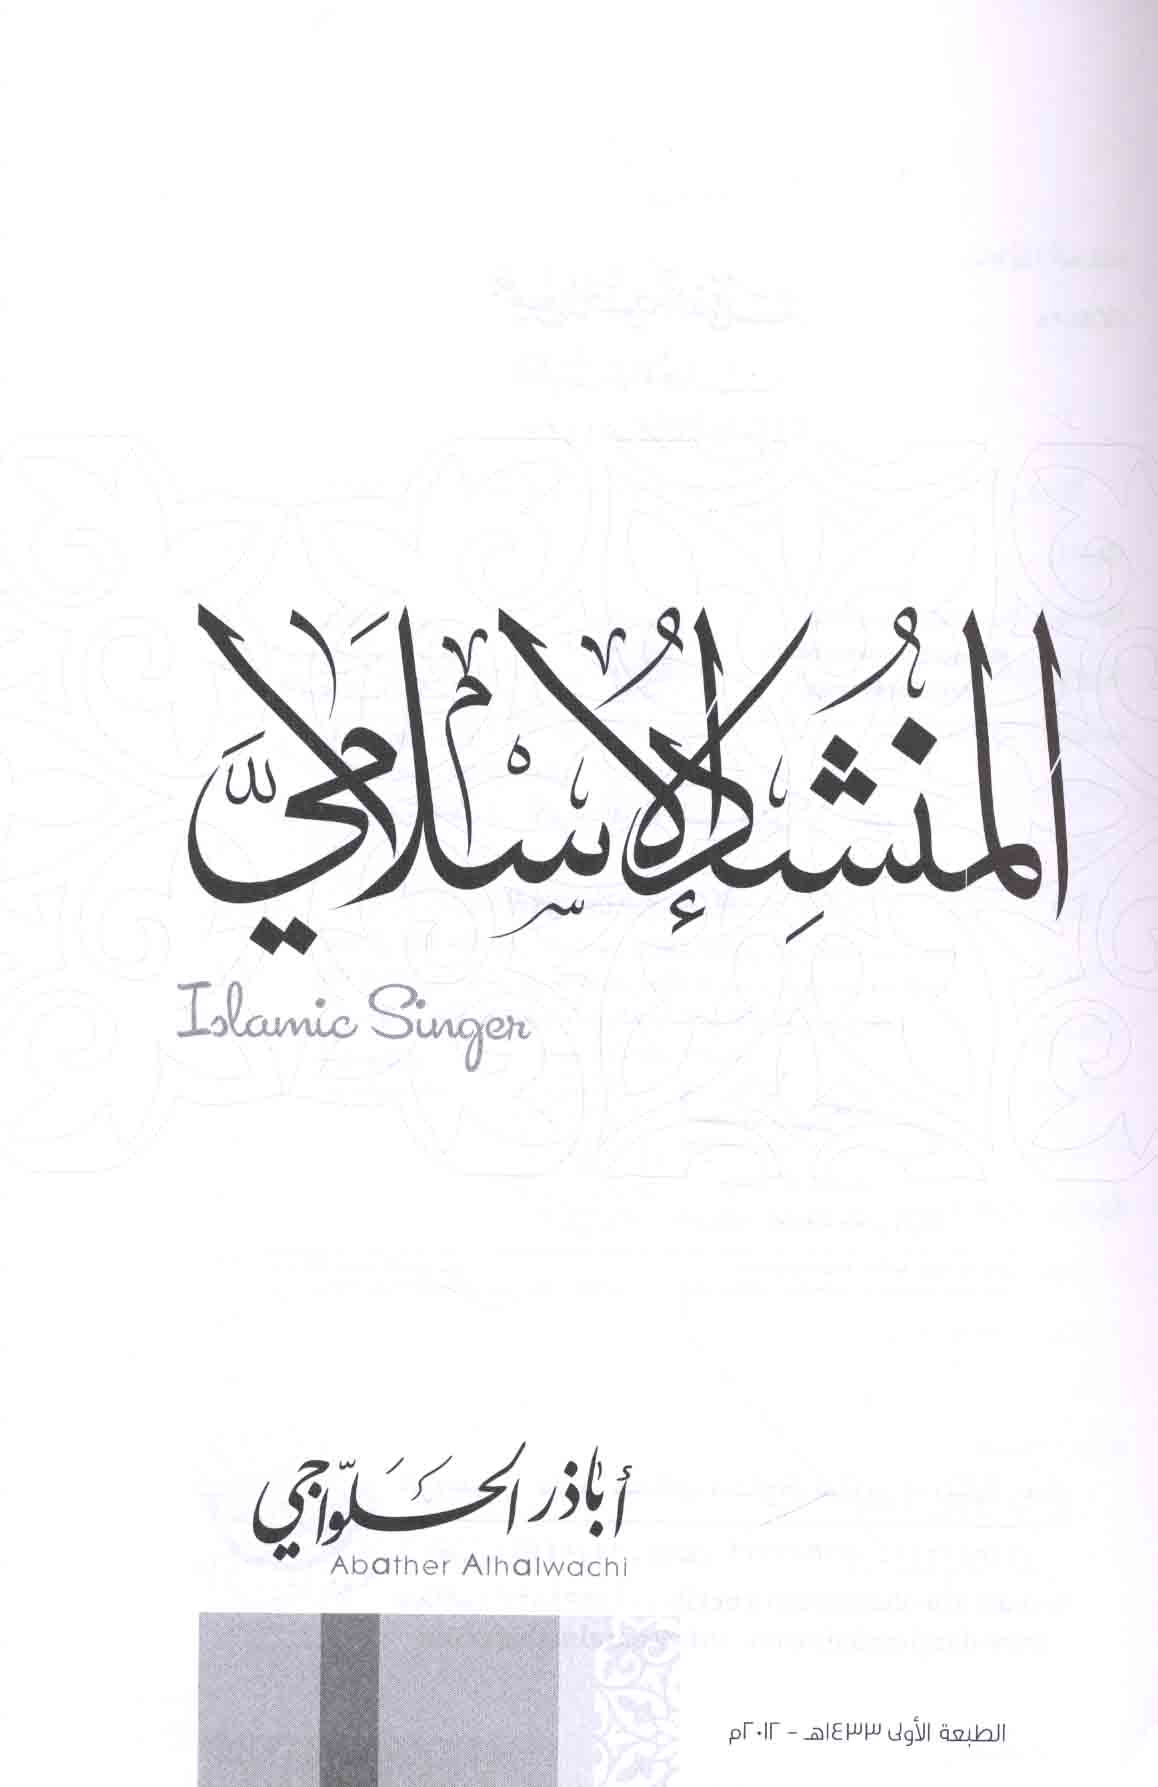 المنشد الإسلامي
Islamic Singer
أباذر الحلواجي
Abather Alhalwachi
الطبعة الأولى ١٤٣٣هـ - ٢٠١٢م